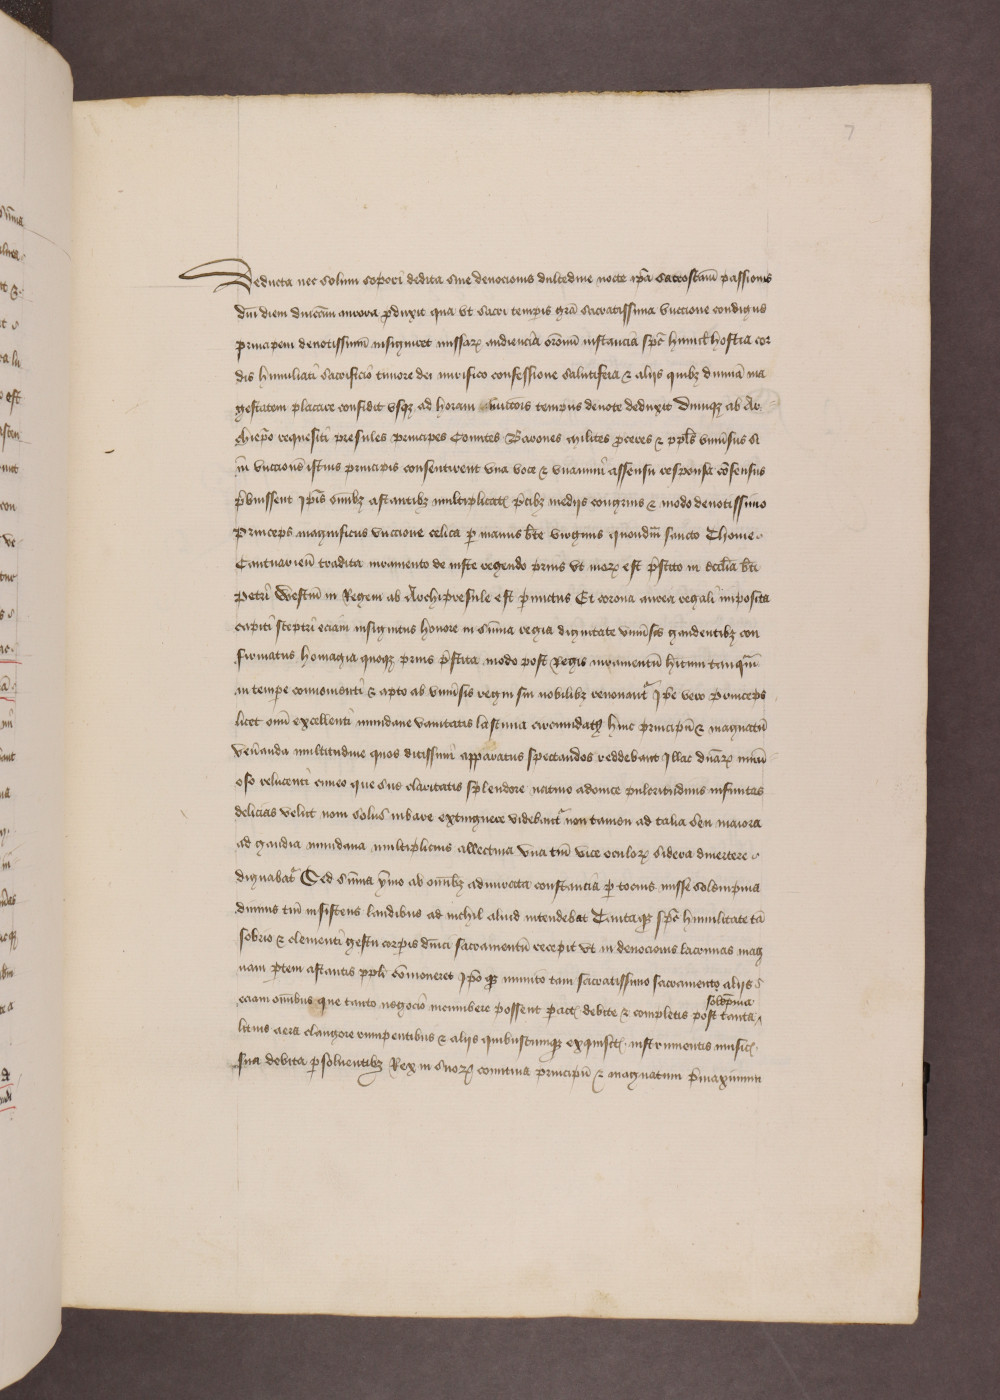 7
Deducta nec solum sopori dedita sue deuocionis dulcedine nocte ip̄a sacrosctam̄ passionis
dm̄ diem dnicam̄ aurora ꝑduxit qua vt sacri temꝑis grā sacratissima vnccione condignus
principem deuotissimū insigniret missarꝝ audiencia orōnū instancia spc̄ humił hostia cor
dis humiliati sacrificio timore dei mirifico confessione salutifera & alijs quibꝫ diuinā ma
gestatem placare confidit vsqꝫ ad horam vnccōis tempus deuote deduxit Cunqꝫ ab Ar
chiep̄o requesiti presules principes Comites Barones milites proceres & ppl̄s vniu'sus si
in vnccionē istius principis consentirent vna voce & vnanimi assensu responsa cōsensus
p̄buissent Ip̄is omībꝫ astantibꝫ multiplicatꝭ p̄cibꝫ medijs congruis & modo deuotissimo
Princeps magnificus vnccione celica ꝑ manus bt̄e virginis quondm̄ sancto Thome
Cantuarien̄ tradita iuramento de iuste regendo prius vt morꝝ est p̄stito in Eccl̄ia bt̄i
Petri Westm̄ in Regem ab Archipresule est ꝑunctus Et corona aurea regali imposita
capiti sceptri eciam insignitus honore in sūma regia dignitate vniu'sis gaudentibꝫ con
firmatus homagia quoqꝫ prius p̄stita modo post Regis iuramentū hitum tanqm̄
in tempe conuenienti & apto ab vniu'sis regni sui nobilibꝫ renouant᷑ Ip̄e vero Princeps
licet omī excellenti mundane vanitatis lasciuia circumdatꝰ hinc principū & magnatū
ven̄anda multitudine quos ditissimi apparatus spectandos reddebant Illac dn̄arꝝ
oso relucenti cuneo que suis claritatis splendore nitiuo adonice pulcritudinis infinitas
delicias velut nom solus iubare extinguere videbant᷑ non tamen ad talia seu maiora
ad gaudia mundana multiplicius allectiua vna tm̄ vice oculorꝝ sidera diuertere
dignabat᷑ Sed sūma ymo ab omībꝫ admirata constancia ꝑ tocius misse solempnia
diuinis tm̄ insistens laudibus ad nichil aliud intendebat Tantaqꝫ spc̄ humilitate tā
sobrio & clementi gestu corꝑis dn̄ici sacramentū recepit vt in deuocionis lacrimas mag
nam ꝑtem astantis ppli cōmoneret Ip̄o qꝫ munito tam sacratissimo sacramento alijs
eciam omībus que tanto negocio incumbere possent ꝑactꝭ debite & completis post tanta
solēpnia
lituis aera clangore rumpentibus & alijs quibuscunqꝫ exquisitꝭ instrumentis musicꝭ
sua debita ꝑsoluentibꝫ Rex in suorꝝ comitiua principū & magnatum p̄maximum